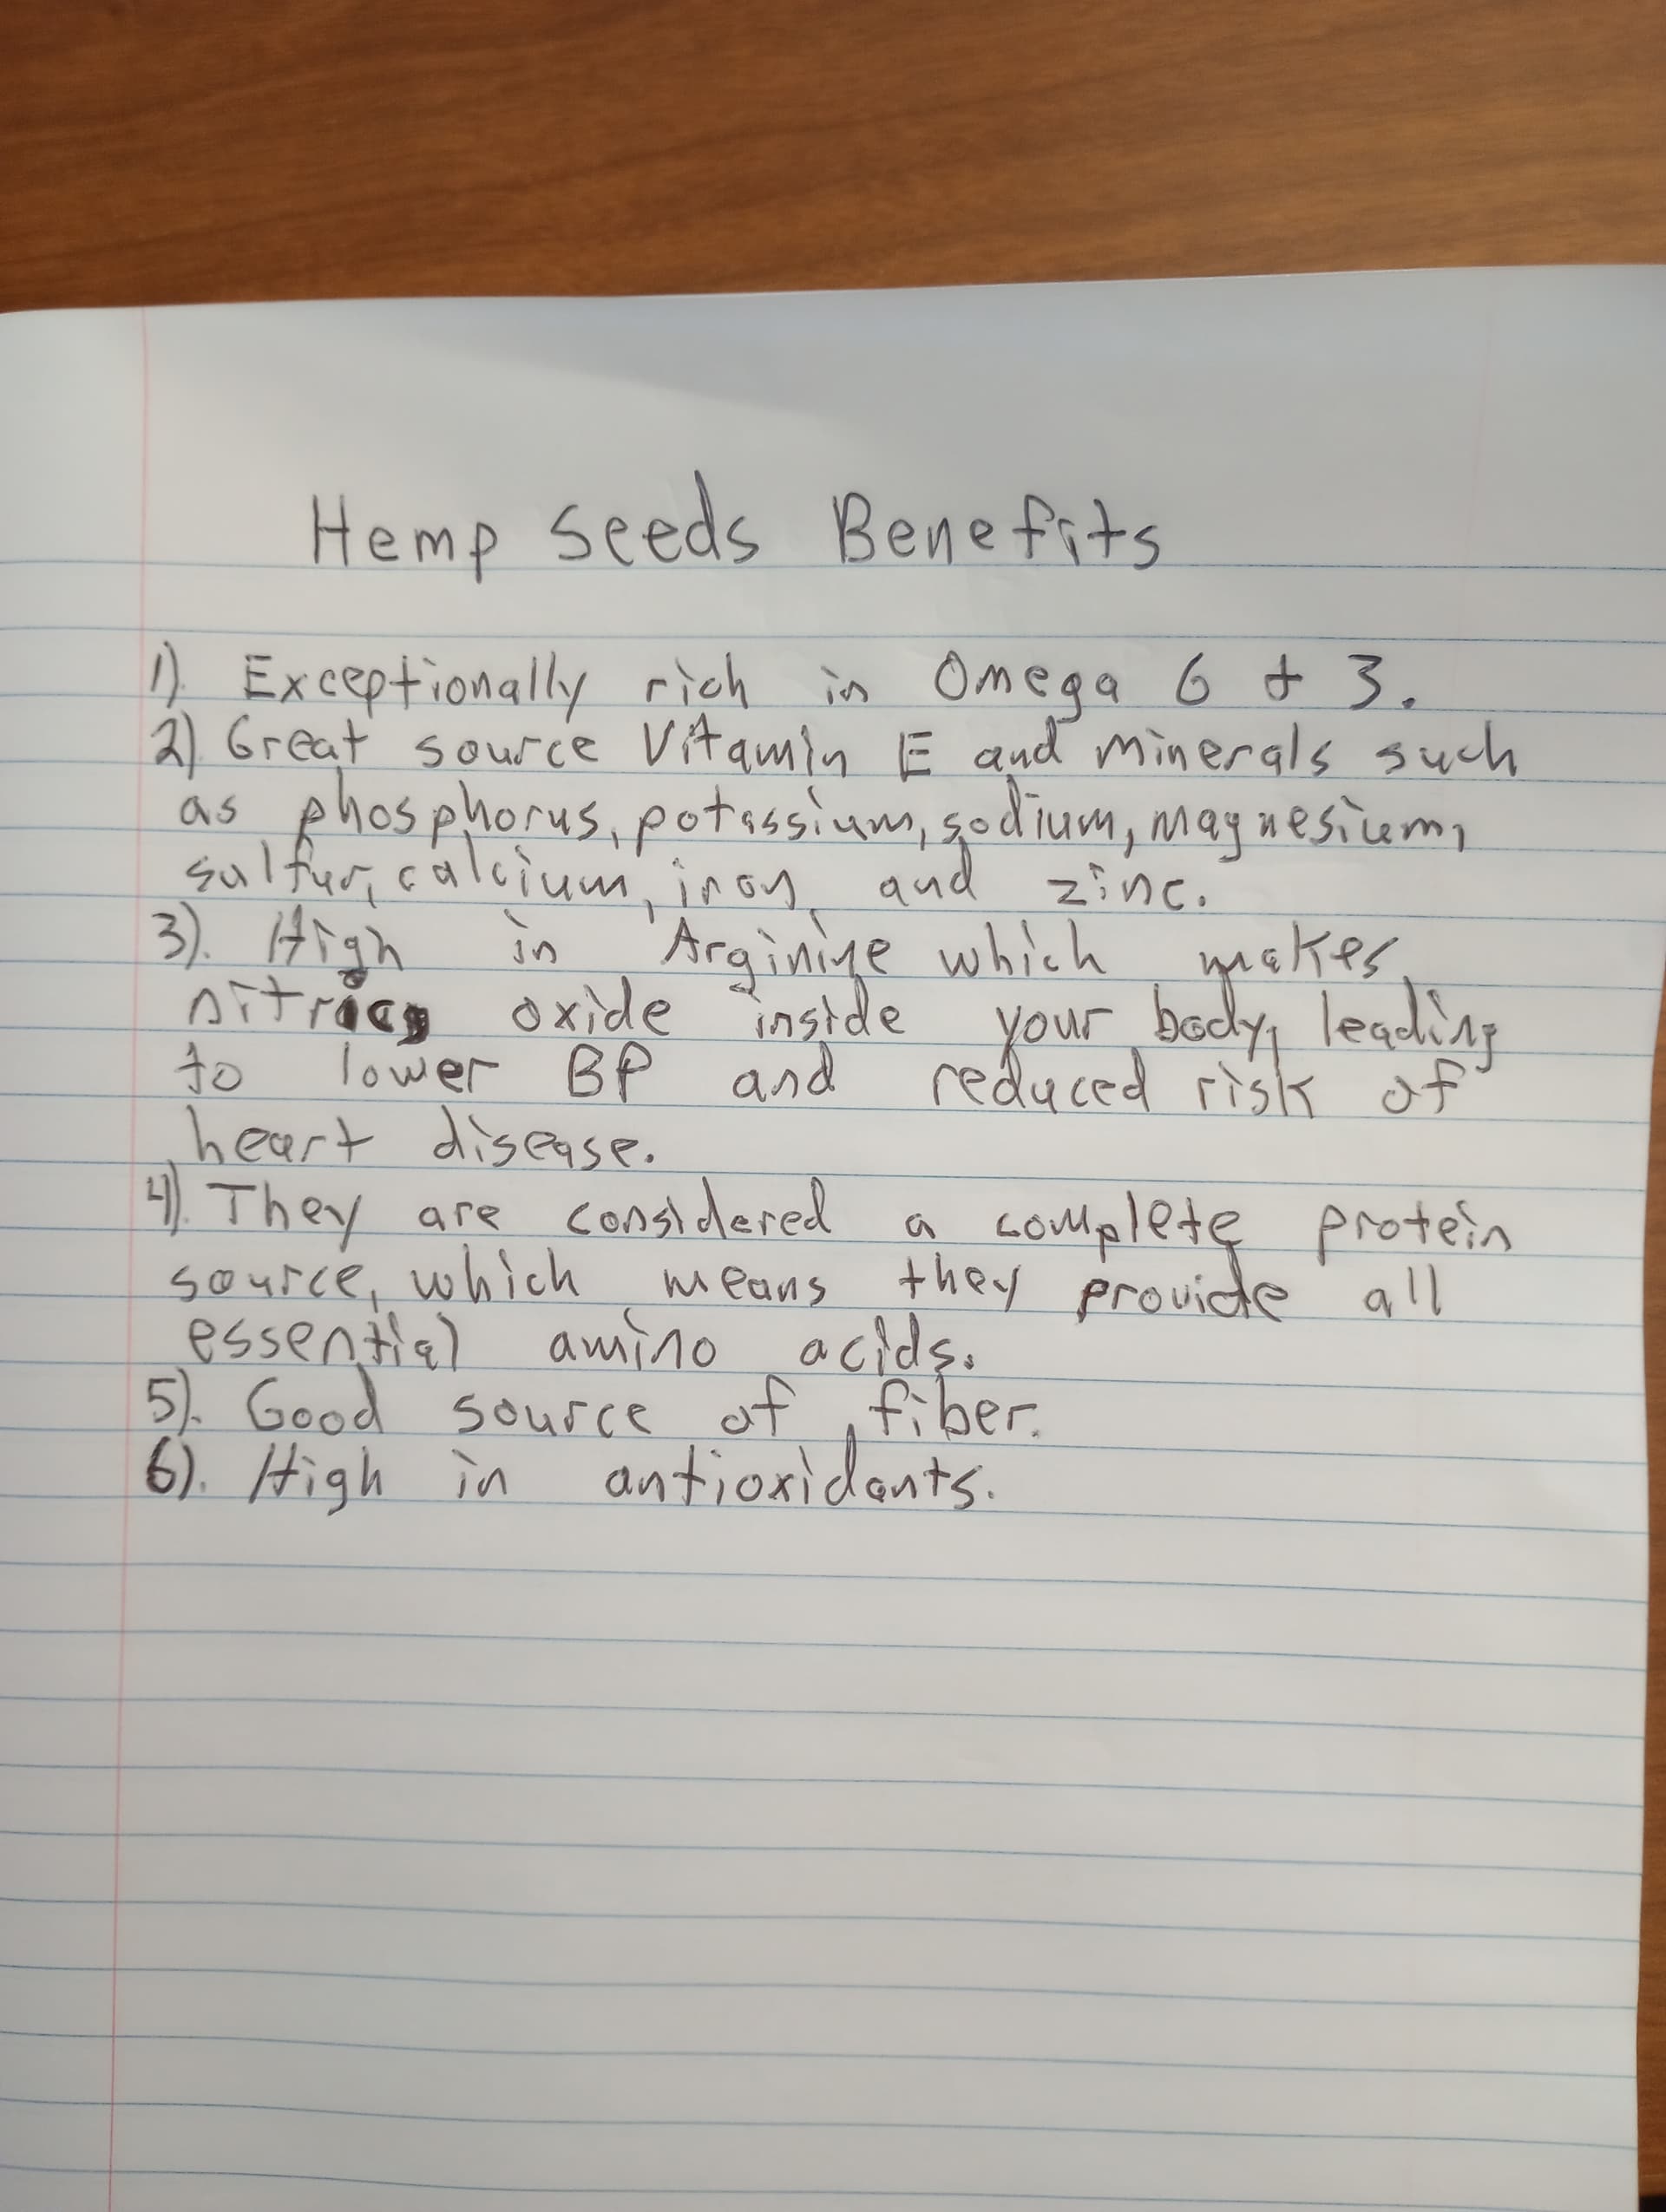 Hemp Seeds Benefits
1). Exceptionally rich in Omega 6 + 3.
2). Great source Vitamin E and minerals such
as phosphorus, potassium, sodium, magnesium,
sulfur, calcium, iron, and zinc.
3). High in Arginine which makes
nitric oxide inside your body, leading
to lower BP and reduced risk of
heart disease.
4). They are considered a complete protein
source, which means they provide all
essential amino acids.
5). Good source of fiber.
6). High in antioxidants.